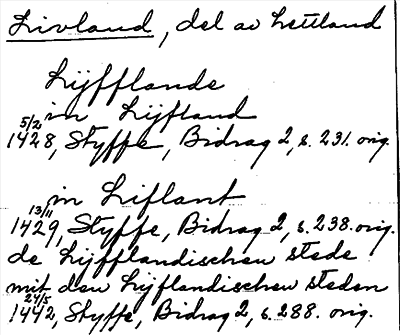 Livland, del av Lettland
Lijfflande
in Lijfland
5/2
1428, Styffe, Bidrag 2, s. 231. orig.
in Liflant
13/11
1429, Styffe, Bidrag 2, s. 238. orig.
de Lijfflandischen stede
mit den Lijflandischen steden
24/5
1442, Styffe, Bidrag 2, s. 288. orig.